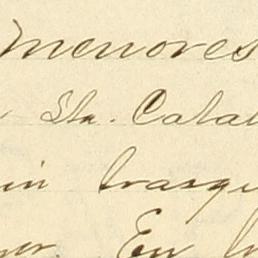 menores
Sta. Catal
in trasqu
En